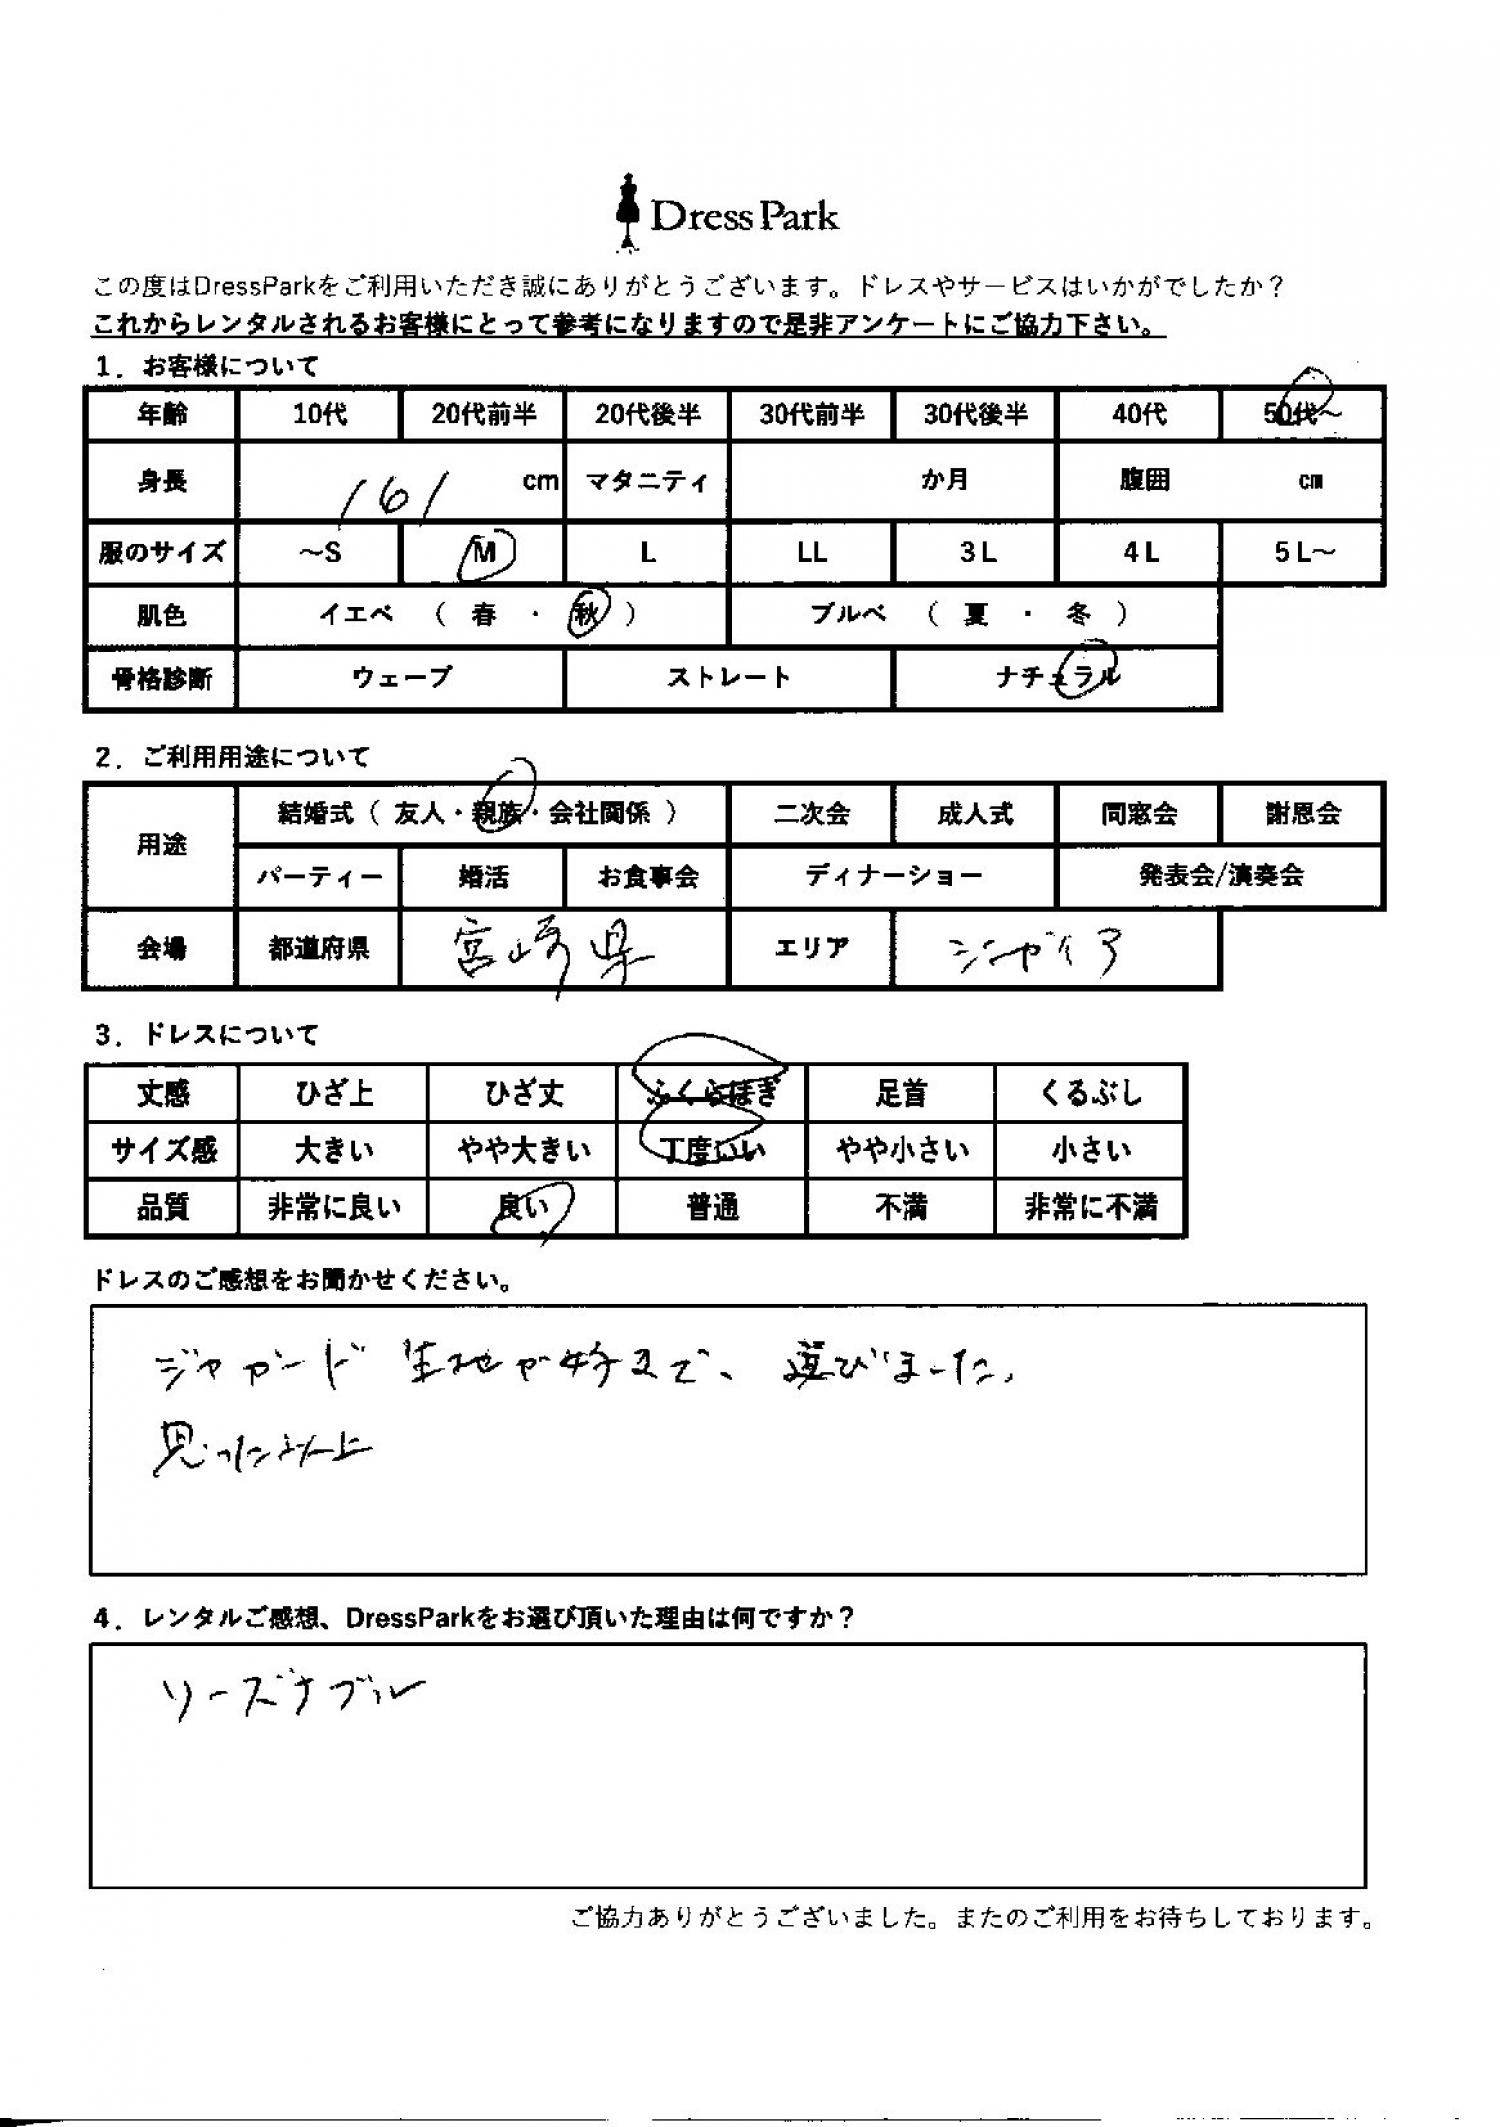 Dress Park
この度はDressParkをご利用いただき誠にありがとうございます。ドレスやサービスはいかがでしたか？
これからレンタルされるお客様にとって参考になりますので是非アンケートにご協力下さい。
1．お客様について
年齢 10代 20代前半 20代後半 30代前半 30代後半 40代 50代～
身長 161 cm マタニティ か月 腹囲 cm
服のサイズ ～S M L LL 3L 4L 5L～
肌色 イエベ （ 春 ・ 秋 ） ブルベ （ 夏 ・ 冬 ）
骨格診断 ウェーブ ストレート ナチュラル
2．ご利用用途について
用途 結婚式（ 友人・親族・会社関係 ） 二次会 成人式 同窓会 謝恩会
パーティー 婚活 お食事会 ディナーショー 発表会/演奏会
会場 都道府県 宮崎県 エリア シーガイア
3．ドレスについて
丈感 ひざ上 ひざ丈 ふくらはぎ 足首 くるぶし
サイズ感 大きい やや大きい 丁度いい やや小さい 小さい
品質 非常に良い 良い 普通 不満 非常に不満
ドレスのご感想をお聞かせください。
ジャガード 生地が好きで、選びました。
思った以上
4．レンタルご感想、DressParkをお選び頂いた理由は何ですか？
リーズナブル
ご協力ありがとうございました。またのご利用をお待ちしております。